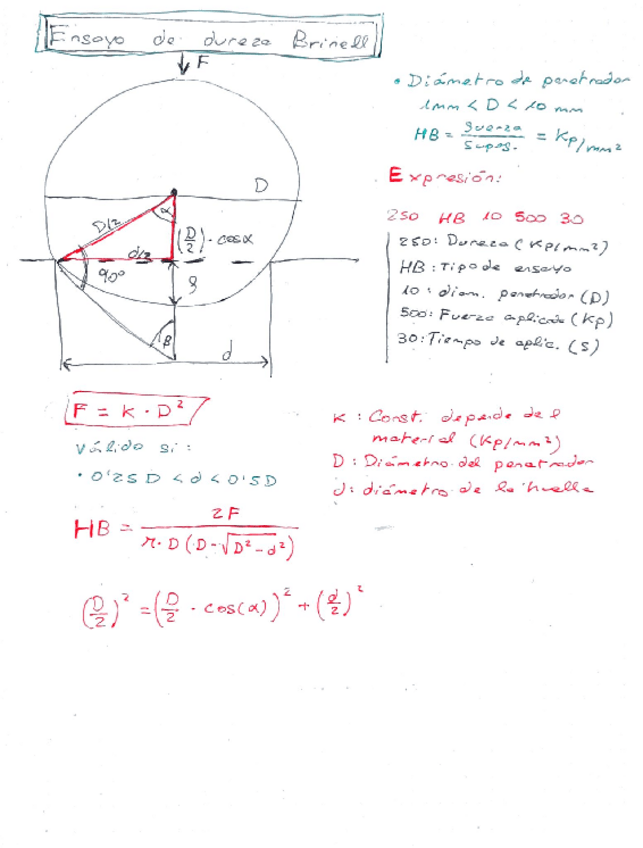 Ensayo de dureza Brinell
F
• Diámetro de penetrador
1mm < D < 10 mm
HB = fuerza / Supof. = Kp/mm²
Expresión:
250 HB 10 500 30
250: Dureza (Kp/mm²)
HB: Tipo de ensayo
10: diam. penetrador (D)
500: Fuerza aplicada (Kp)
30: Tiempo de aplic. (s)
D
D/2
α
(D/2) · cosα
d/2
90°
f
β
d
F = K · D²
válido si:
• 0'25D < d < 0'5D
K: Const. depende del
material (Kp/mm²)
D: Diámetro del penetrador
d: diámetro de la huella
HB = 2F / π · D (D - √D² - d²)
(D/2)² = (D/2 · cos(α))² + (d/2)²